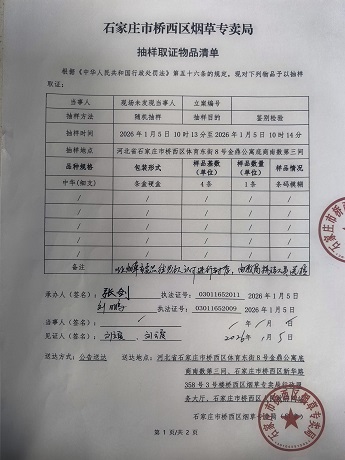 石家庄市桥西区烟草专卖局
抽样取证物品清单
根据《中华人民共和国行政处罚法》第五十六条的规定，现对下列物品予以抽样
取证：
当事人 现场未发现当事人 立案编号
抽样方法 随机抽样 抽样目的 鉴别检验
抽样时间 2026年1月5日10时13分至2026年1月5日10时14分
抽样地点 河北省石家庄市桥西区体育东街8号金鼎公寓底商南数第三间
品种规格 包装形式 样品基数（单位） 样品数量（单位） 样品情况
中华(细支) 条盒硬盒 4条 1条 条码模糊
/ / / / /
/ / / / /
/ / / / /
/ / / / /
/ / / / /
备注
承办人（签名）： 张剑 执法证号：03011652011 2026年1月5日
刘鹏 执法证号：03011652009 2026年1月5日
当事人（签名）： / /年/月/日
见证人（签名）： 2026年1月5日
送达方式：公告送达 送达地点：河北省石家庄市桥西区体育东街8号金鼎公寓底
商南数第三间、石家庄市桥西区新华路
358号3号楼桥西区烟草专卖局行政服
务大厅、石家庄市
石家庄市桥西区烟草专卖局
第1页/共2页
石家庄市桥西区烟草专卖局
石家庄市桥西区烟草专卖局